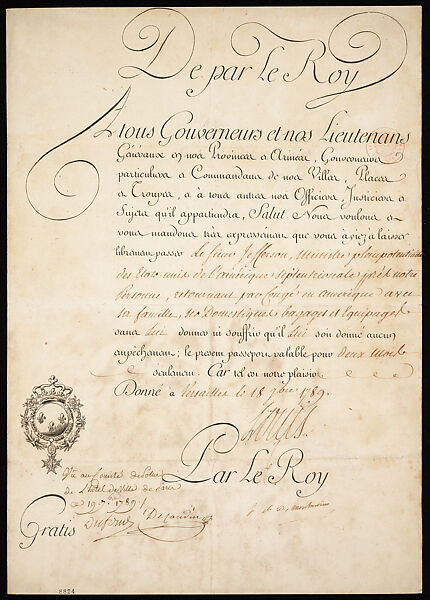 De par le Roy
A tous Gouverneurs et nos Lieutenans
Généraux en nos Provinces et Armées, Gouverneurs
particuliers et Commandans de nos Villes, Places
et Troupes, et à tous autres nos Officiers, Justiciers et
Sujets qu'il appartiendra, Salut. Nous voulons et
vous mandons très expressément que vous ayiez à laisser
librement passer le sieur Jefferson, Ministre plenipotentiaire
des Etats unis de l'amérique septentrionale près notre
Personne, retournant par Congé en amérique avec
sa famille, ses Domestiques bagages et Equipages
sans lui donner ni souffrir qu'il lui soit donné aucun
empêchement; le present passeport valable pour deux mois
seulement. Car tel est notre plaisir
Donné à Versailles le 18 7bre 1789.
Louis
Par le Roy
Vu au Comité de Police
de l'hotel de Ville de Paris
ce 19. 7bre 1789
Gratis
8824